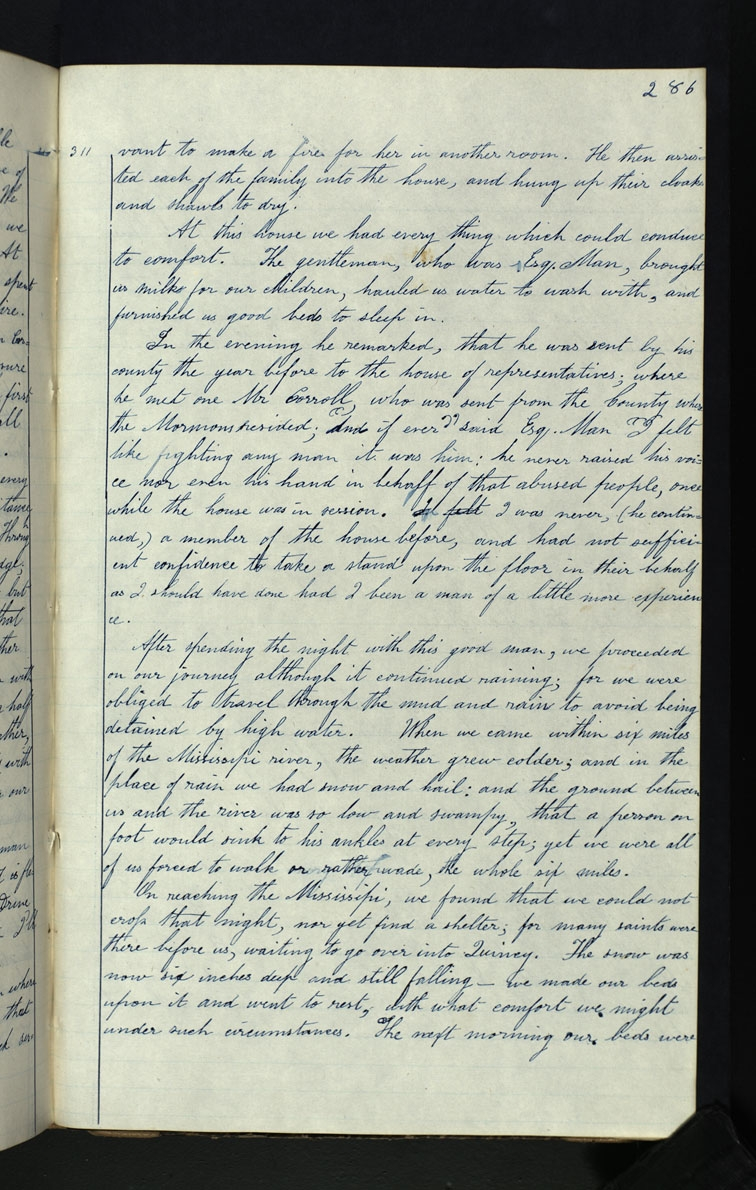 286
311 vant to make a fire for her in another room. He then assis-
ted each of the family into the house, and hung up their cloaks
and shawls to dry.
At this house we had every thing which could conduce
to comfort. The gentleman, who was Esq. Man, brought
us milk for our children, hauled us water to wash with, and
furnished us good beds to sleep in.
In the evening he remarked, that he was sent by his
county the year before to the house of representatives; where
he met one Mr Corroll, who was sent from the County where
the Mormons resided; And if ever" said Esq. Man "I felt
like fighting any man it was him: he never raised his voi=
ce nor even his hand in behalf of that abused people, once
while the house was in session. I felt I was never, (he contin=
ued,) a member of the house before, and had not suffici-
ent confidence to take a stand upon the floor in their behalf
as I should have done had I been a man of a little more experien
ce.
After spending the night with this good man, we proceeded
on our journey although it continued raining; for we were
obliged to travel through the mud and rain to avoid being
detained by high water. When we came within six miles
of the Missisipi river, the weather grew colder; and in the
place of rain we had snow and hail: and the ground between
us and the river was so low and swampy, that a person on
foot would sink to his ankles at every step; yet we were all
of us forced to walk or rather wade, the whole six miles.
On reaching the Mississipi, we found that we could not
cross that night, nor yet find a shelter; for many saints were
there before us, waiting to go over into Quincy. The snow was
now six inches deep and still falling — we made our beds
upon it and went to rest, with what comfort we might
under such circumstances. The next morning our beds were